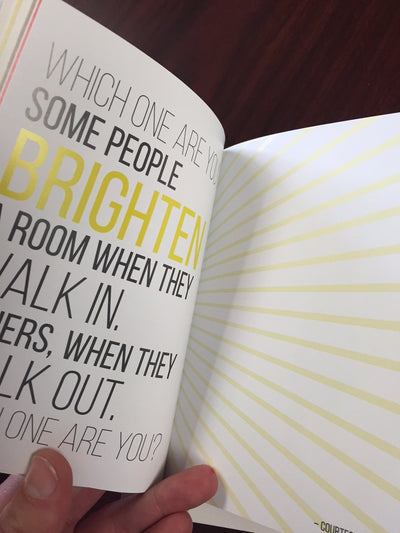 WHICH ONE ARE YOU
SOME PEOPLE
BRIGHTEN
A ROOM WHEN THEY
WALK IN.
HERS, WHEN THEY
LK OUT.
H ONE ARE YOU?
– COURTE